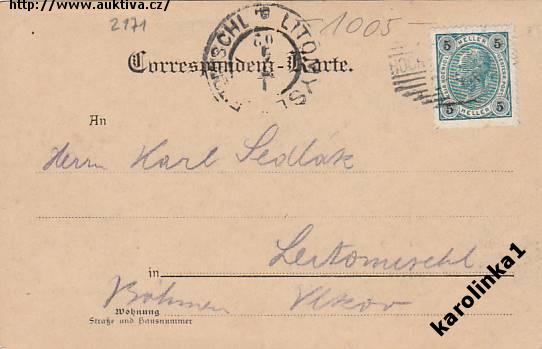 http://www.auktiva.cz/
2171
-1005-
LEITOMISCHL LITOMYŠL
02
Correspondenz-Karte.
HELLER
5 5
5 HELLER 5
An
Herrn Karl Sedlák
Leitomischl
in
Böhmen Vlkov
Wohnung
Straße und Hausnummer
karolinka1